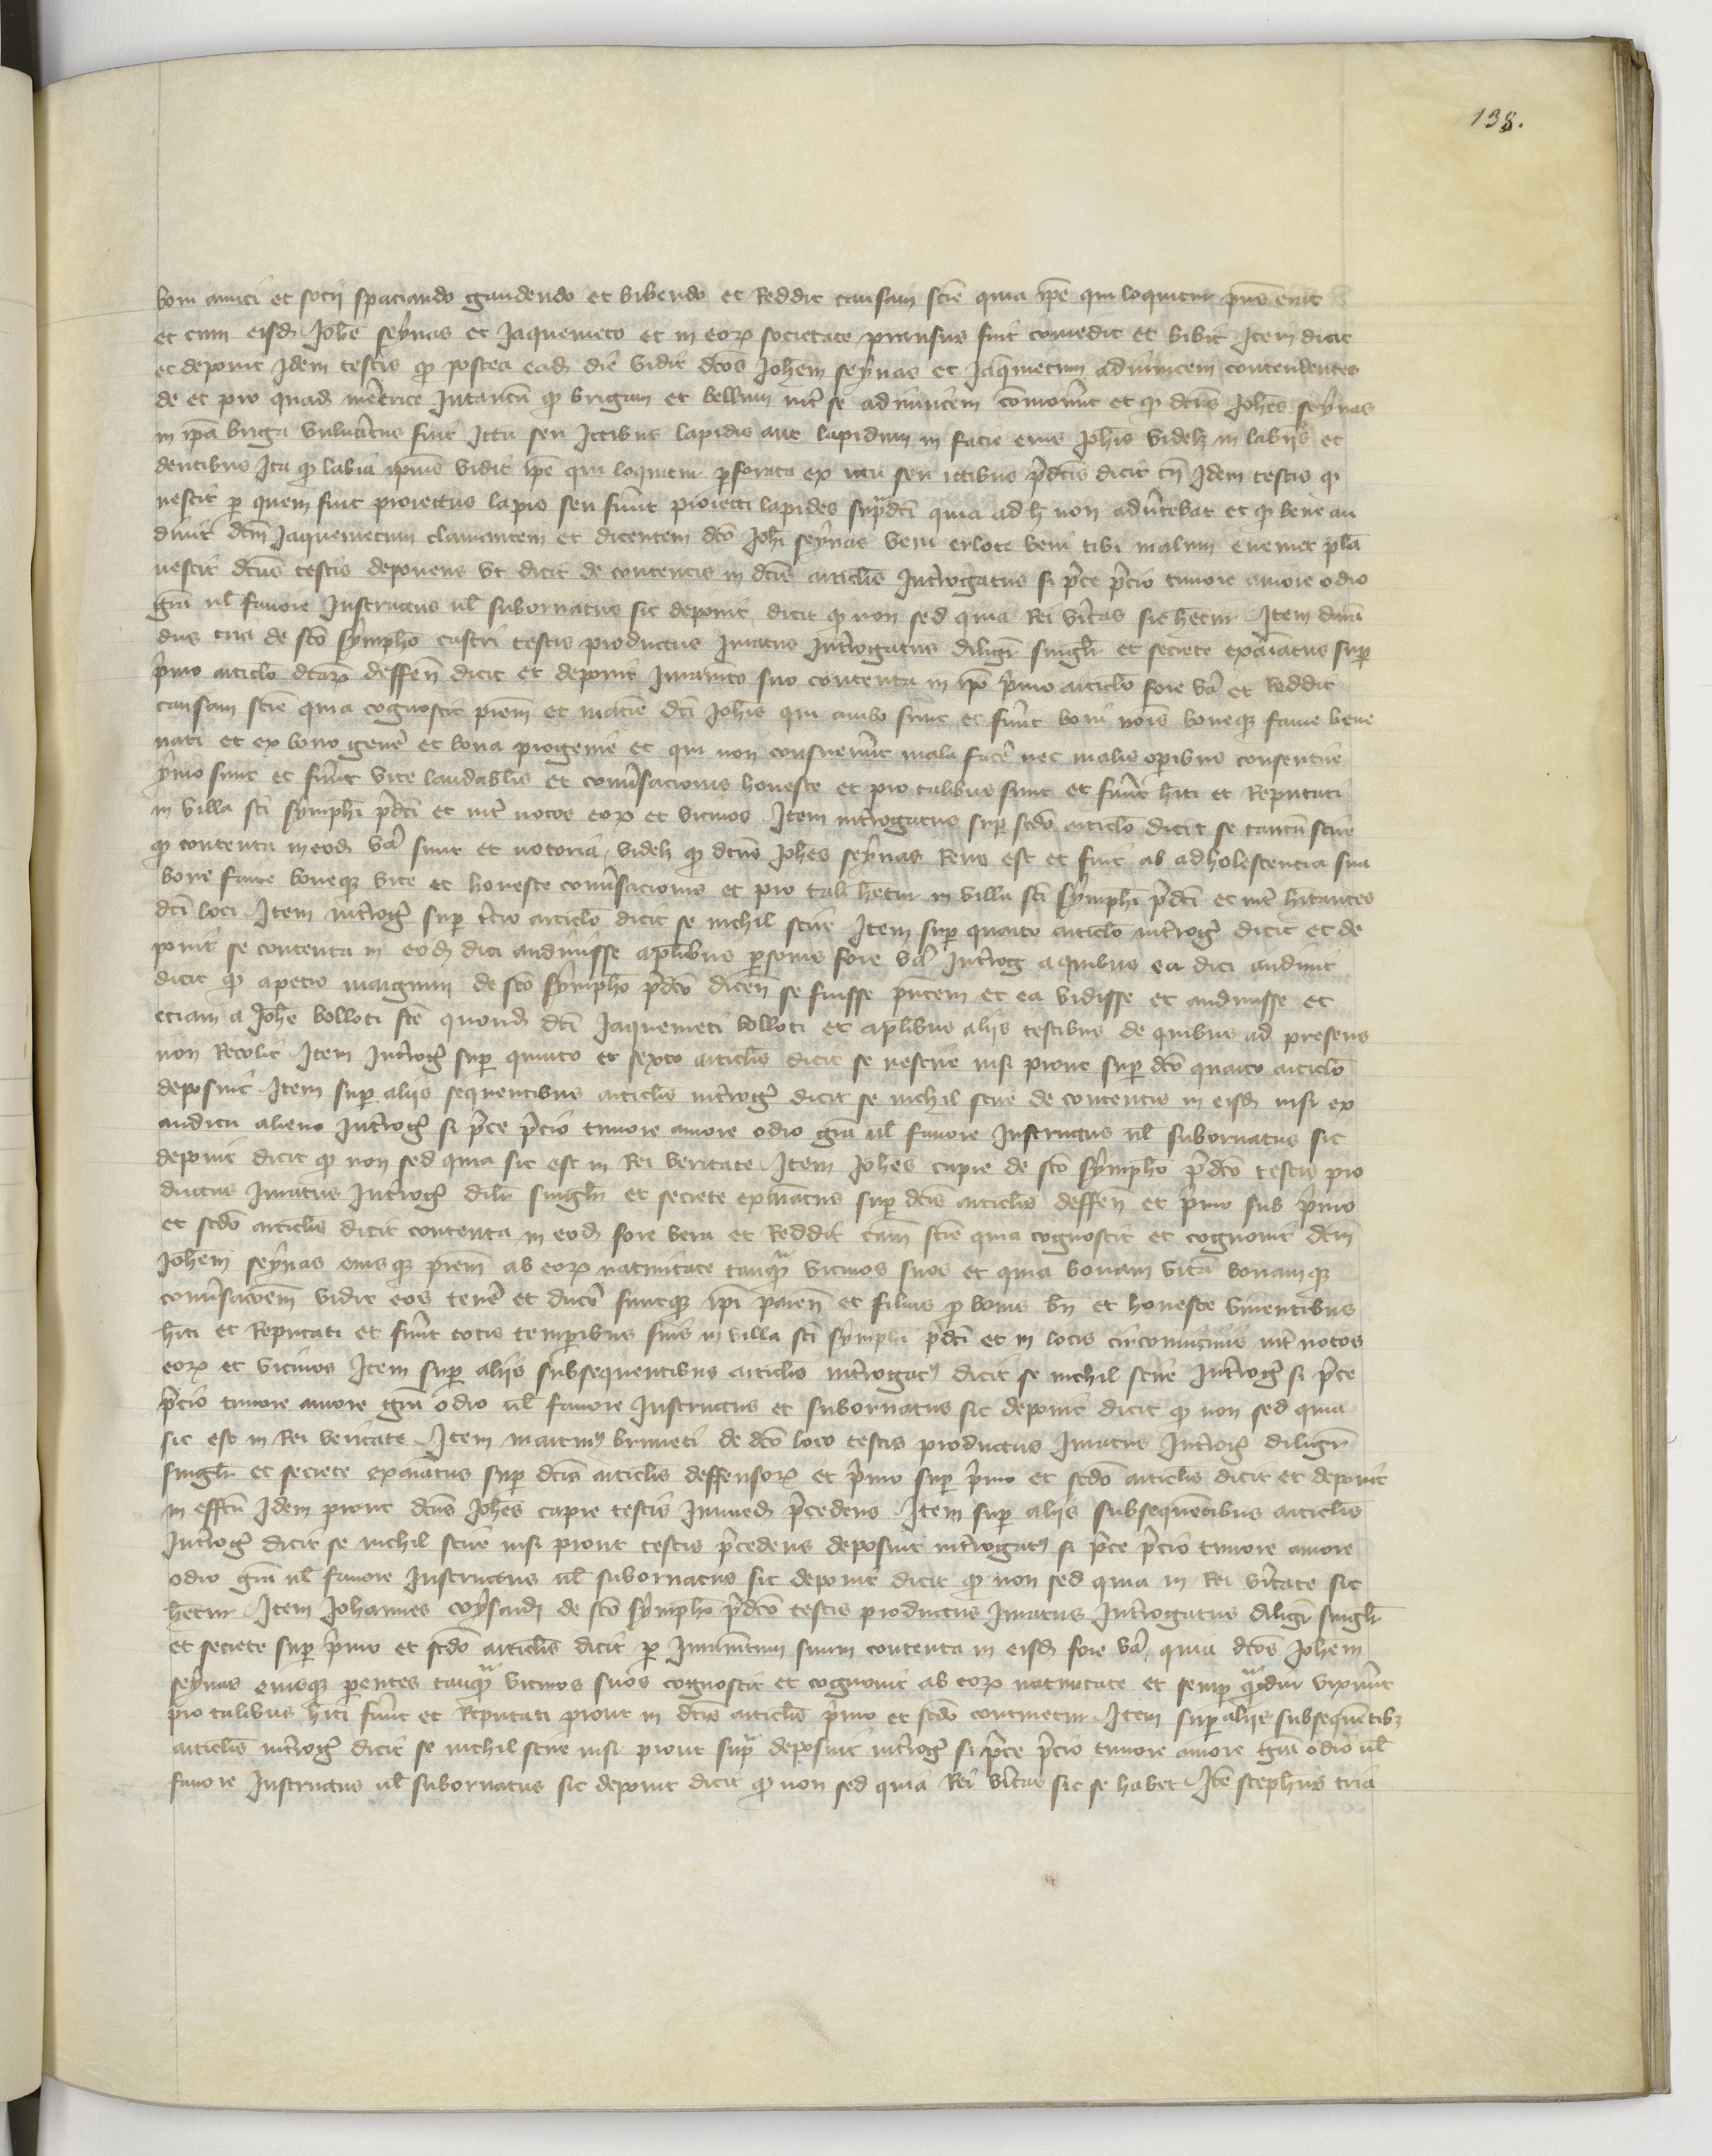 138.
boni amici et socii spaciando gaudendo et bibendo et Reddit causam scie quia ipe qui loquitur pns erat
et cum eisd Johe seynas et Jaquemeto et in eorum societate pransus fuit comedit et bibit Item dicit
et deponit Idem testis qd postea ead die vidit dcos Johem seynas et Jaquemetum adinvicem contendentes
de et pro quad meretrice Intantum qd brigam et bellum inter se adinvicem comoverunt et qd dcus Johes seynas
in ipa briga vulneratus fuit Ictu seu Ictibus lapidis aut lapidum in facie eius Johis videlz in labiis et
dentibus Ita qd labia ipius vidit ipe qui loquitur perforata ex ictu seu ictibus predictis dicit tn Idem testis qd
nescit per quem fuit proiectus lapis seu fuerunt proiecti lapides supradcti quia ad h non advertebat et qd bene au
divit dcm Jaquemetum clamantem et dicentem dco Johi seynas veni veni tibi malum eveniet plura
nescit dcus testis deponens ut dicit de contentis in dcis articlis Interrogatus si prece precio timore amore odio
gra vl favore Instructus vl subornatus sic deponit dicit qd non sed quia Rei veritas sic hetur Item
de sco Sympho castri testis productus Juratus Interrogatus diligr singlr et secrete examinatus super
primo articlo dcarum deffen dicit et deponit Juramto suo contenta in ipo primo articlo fore va et Reddit
causam scie quia cognoscit prem et matrem dci Johis qui ambo sunt et fuerunt boni nois boneque fame bene
nati et ex bono genere et bona progenie et qui non consueverunt mala facere nec malis operibus consentire
ymo sunt et fuerunt vite laudablis et conversacionis honeste et pro talibus sunt et fuerunt hiti et Reputati
in villa sci Symphi predcti et inter notos eorum et vicinos Item interrogatus super scdo articlo dicit se tantum scire
qd contenta in eod va sunt et notoria, videlz qd dcus Johes seynas Reus est et fuit ab adholescencia sua
bone fame boneque vite et honeste conversacionis et pro tali hetur in villa sci Symphi predcti et inter hitantes
dci loci Item interrogatus super tercio articlo dicit se nichil scire Item super quarto articlo interrogatus dicit et de
ponit se contenta in eod dici audivisse a pluribus personis fore va Interrog a quibus ea dici audivit
dicit qd a petro maignini de sco Sympho predcto dicen se fuisse pntem et ea vidisse et audivisse et
etiam a Johe bolloti fre quond dci Jaquemeti bolloti et a pluribus aliis testibus de quibus ad presens
non Recolit Item Interrogatus super quinto et sexto articlis dicit se nescire nisi prout super dco quarto articlo
deposuit Item super aliis sequentibus articlis interrogatus dicit se nichil scire de contentis in eisd nisi ex
auditu alieno Interrogatus si prece precio timore amore odio gra vl favore Instructus vl subornatus sic
deponit dicit qd non sed quia sic est in Rei veritate Item Johes capie de sco Sympho predcto testis pro
ductus Juratus Interrogatus dilir singlr et secrete examinatus super dcis articlis deffen et primo sub primo
et scdo articlis dicit contenta in eod fore vera et Reddit cam scie quia cognoscit et cognovit dcm
Johem seynas eiusque prem ab eorum nativitate tanquam vicinos suos et quia bonam vitam bonamque
conversacoem vidit eos tenere et ducere suntque ipi paren et filius pro bonis bn et honeste viventibus
hiti et Reputati et fuerunt totis temporibus suis in villa sci Symphi predcti et in locis circonvicinis inter notos
eorum et vicinos Item super aliis subsequentibus articlis interrogatus dicit se nichil scire Interrogatus si prece
precio timore amore gra odio vl favore Instructus et subornatus sic deponit dicit qd non sed quia
sic est in Rei veritate Item martinus bruneti de dco loco testis productus Juratus Interrogatus diligr
singlr et secrete examinatus super dcis articlis deffensorum et primo super primo et scdo articlis dicit et deponit
in effctu Idem prout dcus Johes capie testis Immed precedens Item super aliis subsequentibus articlis
Interrogatus dicit se nichil scire nisi prout testis precedens deposuit interrogatus si prece precio timore amore
odio gra vl favore Instructus vl subornatus sic deponit dicit qd non sed quia in Rei veritate sic
hetur Item Johannes de sco Sympho predcto testis productus Juratus Interrogatus diligr singlr
et secrete super primo et scdo articlis dicit per Juramentum suum contenta in eisd fore va, quia dcos Johem
seynas eiusque parentes tanquam vicinos suos cognoscit et cognovit ab eorum nativitate et semper quamdiu vixerunt
pro talibus hiti fuerunt et Reputati prout in dcis articlis primo et scdo continetur Item super aliis subsequentibus
articlis interrogatus dicit se nichil scire nisi prout supra deposuit interrogatus si prece precio timore amore gra odio vl
favore Instructus vl subornatus sic deponit dicit qd non sed quia Rei veritas sic se habet Ite stephus tria